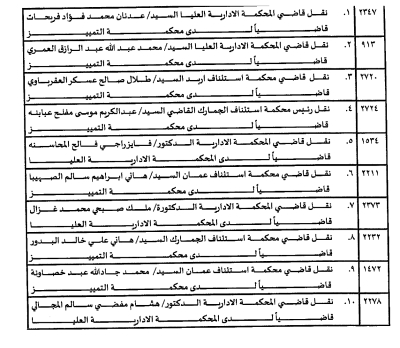 ٢٣٤٧ ١. نقل قاضي المحكمة الادارية العليا السيد/ عدنان محمد فؤاد فريحات
قاضياً لدى محكمة التمييز
٩١٣ ٢. نقل قاضي المحكمة الادارية العليا السيد/ محمد عبدالله عبد الرازق العمري
قاضياً لدى محكمة التمييز
٢٧٢٠ ٣. نقل قاضي محكمة استئناف اربد السيد/ طلال صالح عسكر العقرباوي
قاضياً لدى محكمة التمييز
٢٧٢٤ ٤. نقل رئيس محكمة استئناف الجمارك القاضي السيد/ عبدالكريم موسى مفلح عبابنه
قاضياً لدى محكمة التمييز
١٥٣٤ ٥. نقل قاضي المحكمة الادارية الدكتور/ فايز راجي فالح المحاسنه
قاضياً لدى المحكمة الادارية العليا
٢٢١١ ٦. نقل قاضي محكمة استئناف عمان السيد/ هاني ابراهيم سالم الصهيبا
قاضياً لدى محكمة التمييز
٢٣٧٣ ٧. نقل قاضي المحكمة الادارية الدكتورة/ ملك صبحي محمد غزال
قاضياً لدى المحكمة الادارية العليا
٢٢٣٢ ٨. نقل قاضي محكمة استئناف الجمارك السيد/ هاني علي خالد البدور
قاضياً لدى محكمة التمييز
١٤٧٢ ٩. نقل قاضي محكمة استئناف عمان السيد/ محمد جادالله عبد خصاونة
قاضياً لدى محكمة التمييز
٢٢٧٨ ١٠. نقل قاضي المحكمة الادارية الدكتور/ هشام مفضي سالم المجالي
قاضياً لدى المحكمة الادارية العليا